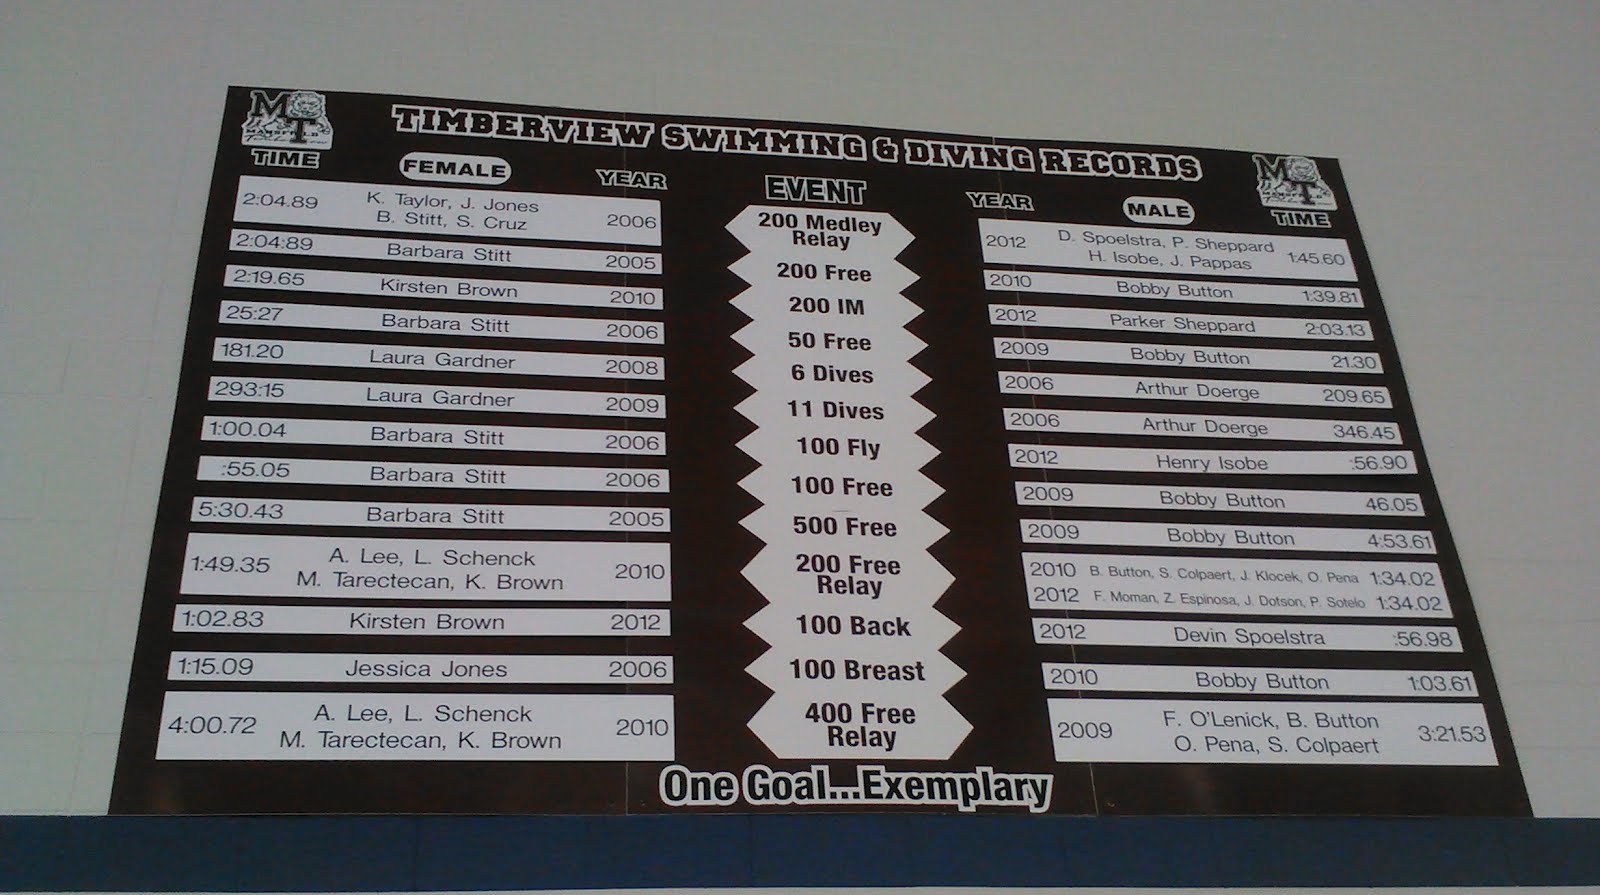 TIMBERVIEW SWIMMING & DIVING RECORDS
MT
MT
TIME FEMALE YEAR EVENT YEAR MALE TIME
2:04.89 K. Taylor, J. Jones B. Stitt, S. Cruz 2006 200 Medley Relay 2012 D. Spoelstra, P. Sheppard H. Isobe, J. Pappas 1:45.60
2:04:89 Barbara Stitt 2005 200 Free 2010 Bobby Button 1:39.81
2:19.65 Kirsten Brown 2010 200 IM 2012 Parker Sheppard 2:03.13
25:27 Barbara Stitt 2006 50 Free 2009 Bobby Button 21.30
181.20 Laura Gardner 2008 6 Dives 2006 Arthur Doerge 209.65
293:15 Laura Gardner 2009 11 Dives 2006 Arthur Doerge 346.45
1:00.04 Barbara Stitt 2006 100 Fly 2012 Henry Isobe :56.90
:55.05 Barbara Stitt 2006 100 Free 2009 Bobby Button 46.05
5:30.43 Barbara Stitt 2005 500 Free 2009 Bobby Button 4:53.61
1:49.35 A. Lee, L. Schenck M. Tarectecan, K. Brown 2010 200 Free Relay 2010 B. Button, S. Colpaert, J. Klocek, O. Pena 1:34.02
2012 F. Moman, Z. Espinosa, J. Dotson, P. Sotelo 1:34.02
1:02.83 Kirsten Brown 2012 100 Back 2012 Devin Spoelstra :56.98
1:15.09 Jessica Jones 2006 100 Breast 2010 Bobby Button 1:03.61
4:00.72 A. Lee, L. Schenck M. Tarectecan, K. Brown 2010 400 Free Relay 2009 F. O'Lenick, B. Button O. Pena, S. Colpaert 3:21.53
One Goal...Exemplary